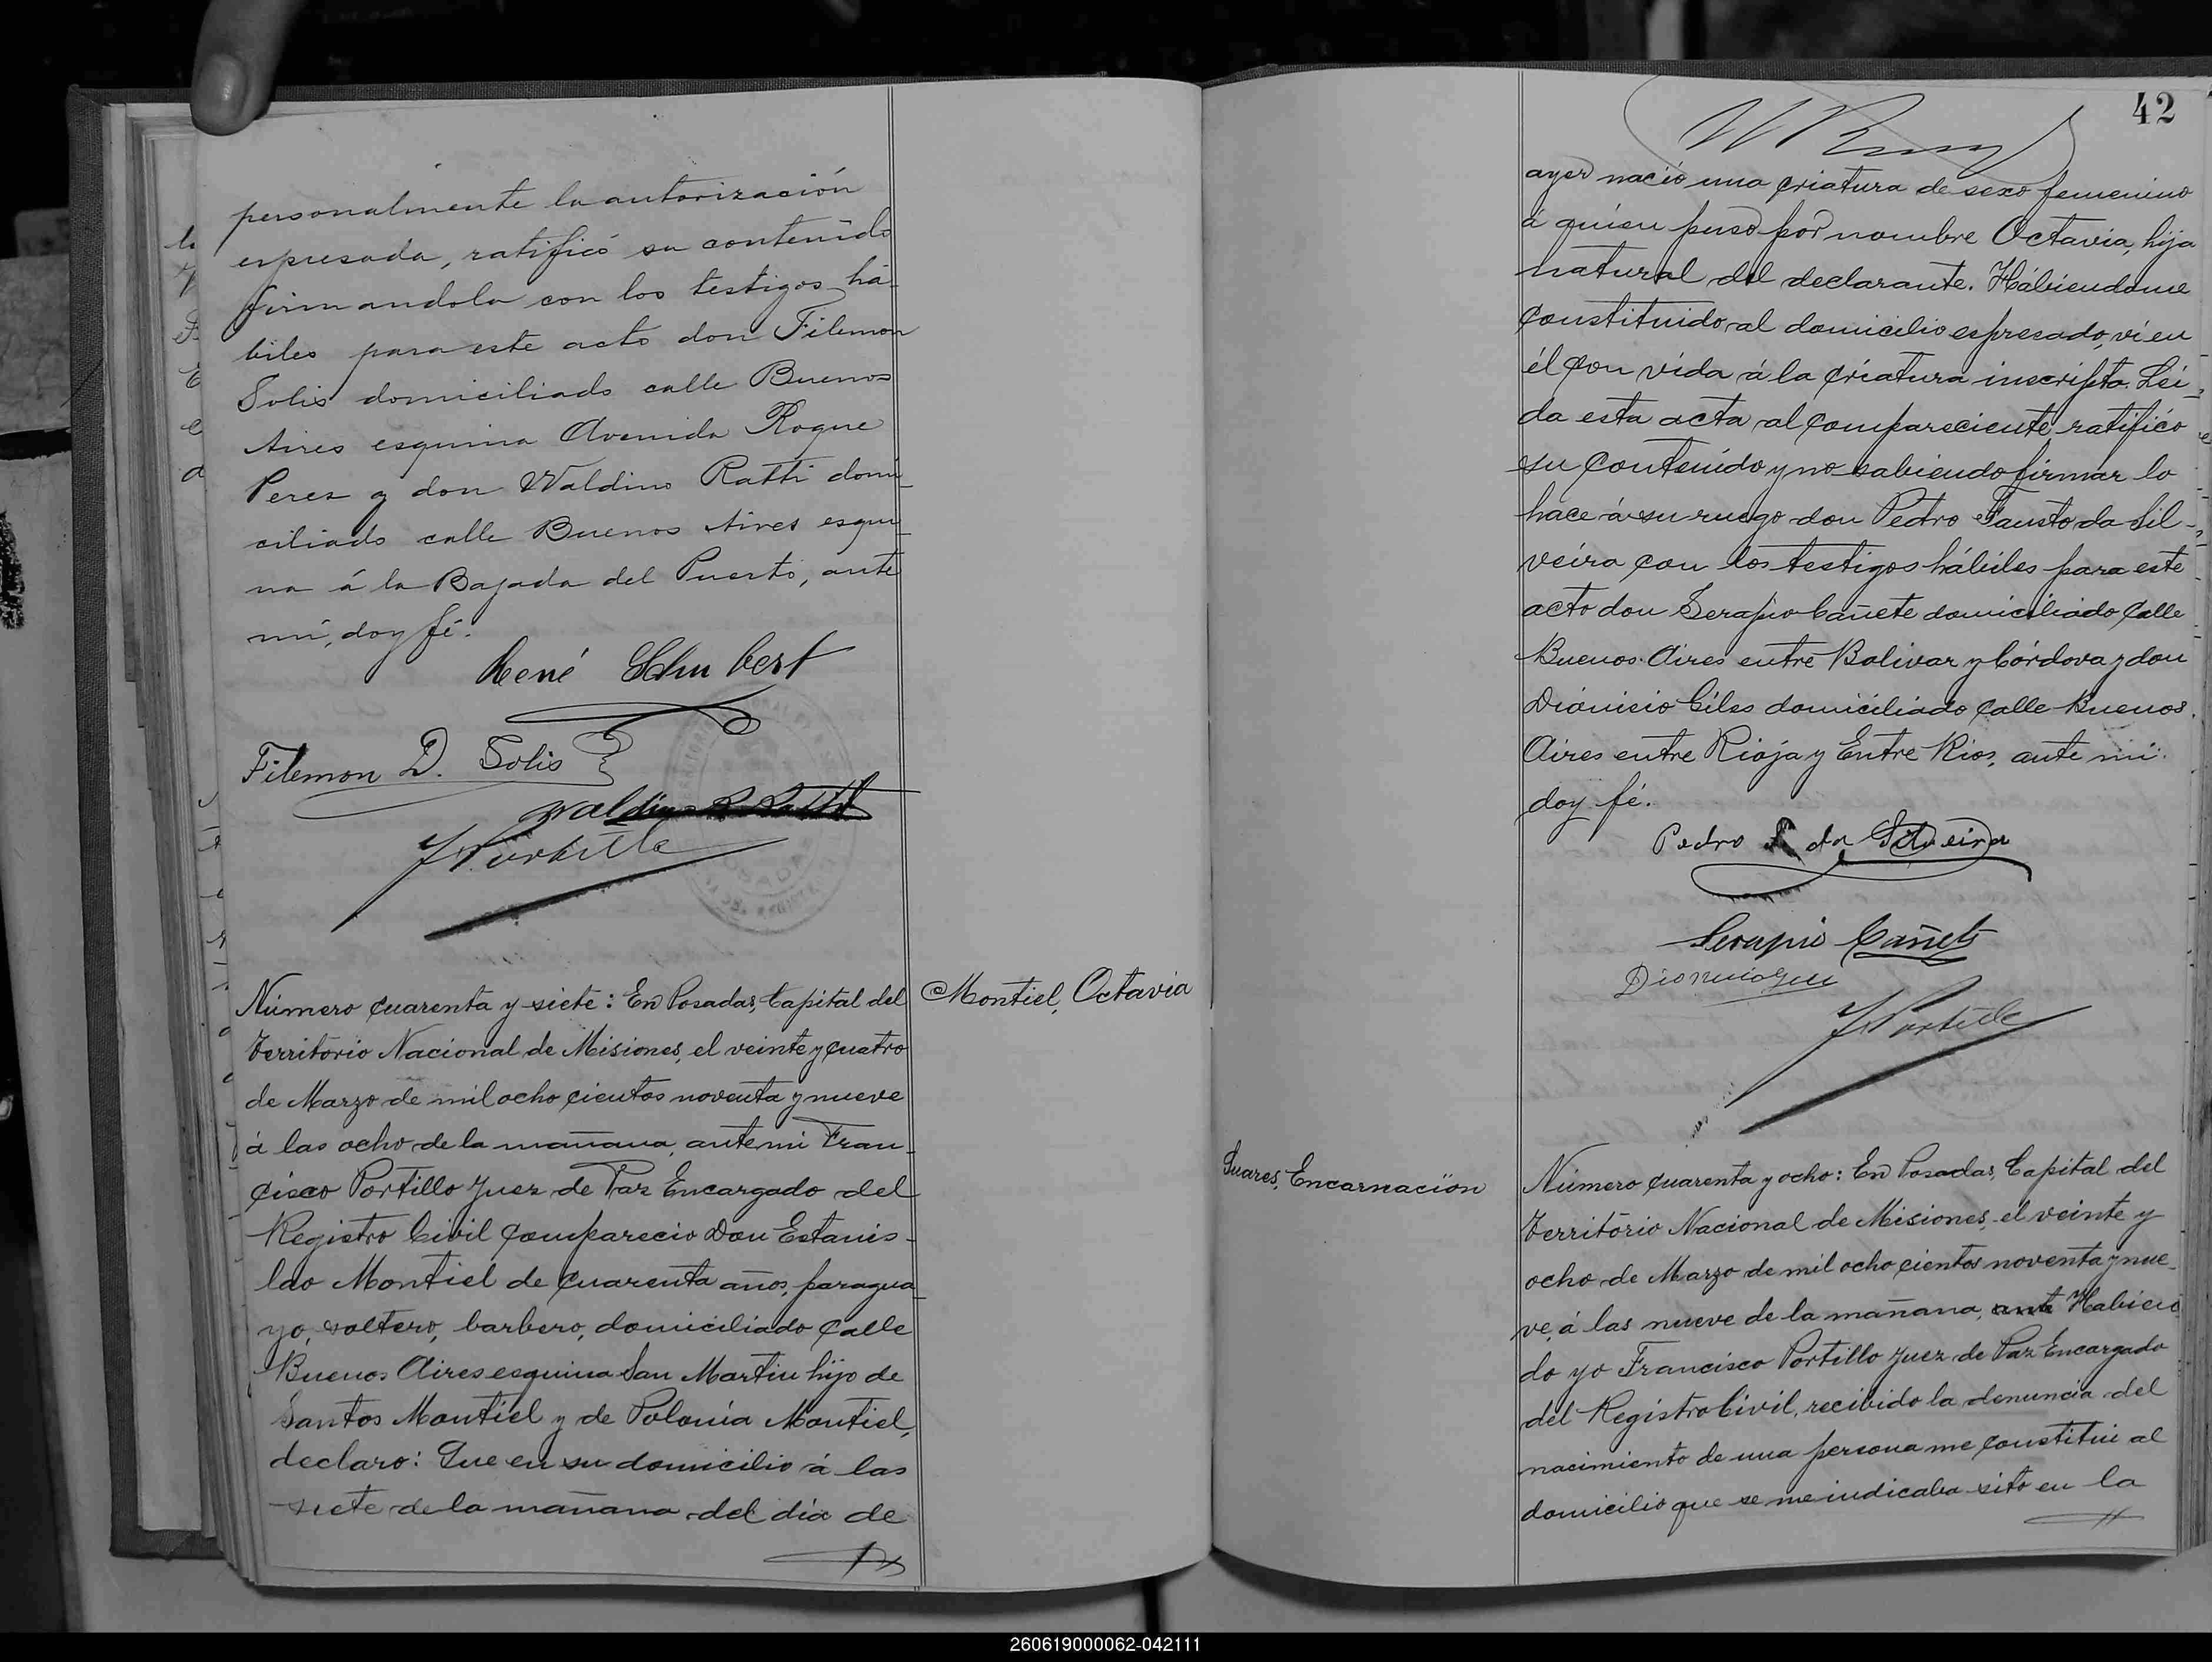 personalmente la autorización
espresada, ratificó su contenido
firmandola con los testigos há-
biles para este acto don Filemon
Solis domiciliado calle Buenos
Aires esquina Avenida Roque
Perez y don Waldino Ratti domi-
ciliado calle Buenos Aires esqui-
na á la Bajada del Puerto, ante
mi, doy fé.
René Schubert
Filemon D. Solis
Waldino R Ratti
F Portillo
Número cuarenta y siete: En Posadas, Capital del
Territorio Nacional de Misiones, el veinte y cuatro
de Marzo de mil ocho cientos noventa y nueve
á las ocho de la mañana, ante mi Fran-
cisco Portillo Juez de Paz Encargado del
Registro Civil comparecio Don Estanis-
lao Montiel de cuarenta años, paragua-
yo, soltero, barbero, domiciliado calle
Buenos Aires esquina San Martin hijo de
Santos Montiel y de Polonia Montiel,
declaro: Que en su domicilio á las
siete de la mañana del día de
Montiel, Octavia
42
ayer nació una criatura de sexo femenino
á quien puso por nombre Octavia, hija
natural del declarante. Habiendome
constituido al domicilio espresado, vi en
él con vida á la criatura inscripta. Lei-
da esta acta al compareciente ratificó
su contenido y no sabiendo firmar lo
hace á su ruego don Pedro Fausto da Sil-
veira con los testigos hábiles para este
acto don Serapio Cañete domiciliado calle
Buenos Aires entre Bolivar y Córdova y don
Dionicio Giles domiciliado calle Buenos
Aires entre Rioja y Entre Rios, ante mi
doy fé.
Pedro F. da Silveira
Serapio Cañete
F Portillo
Suares, Encarnacion
Número cuarenta y ocho: En Posadas, Capital del
Territorio Nacional de Misiones, el veinte y
ocho de Marzo de mil ocho cientos noventa y nue-
ve, á las nueve de la mañana, ante Habien-
do yo Francisco Portillo Juez de Paz Encargado
del Registro Civil, recibido la denuncia del
nacimiento de una persona me constitui al
domicilio que se me indicaba sito en la
260619000062-042111